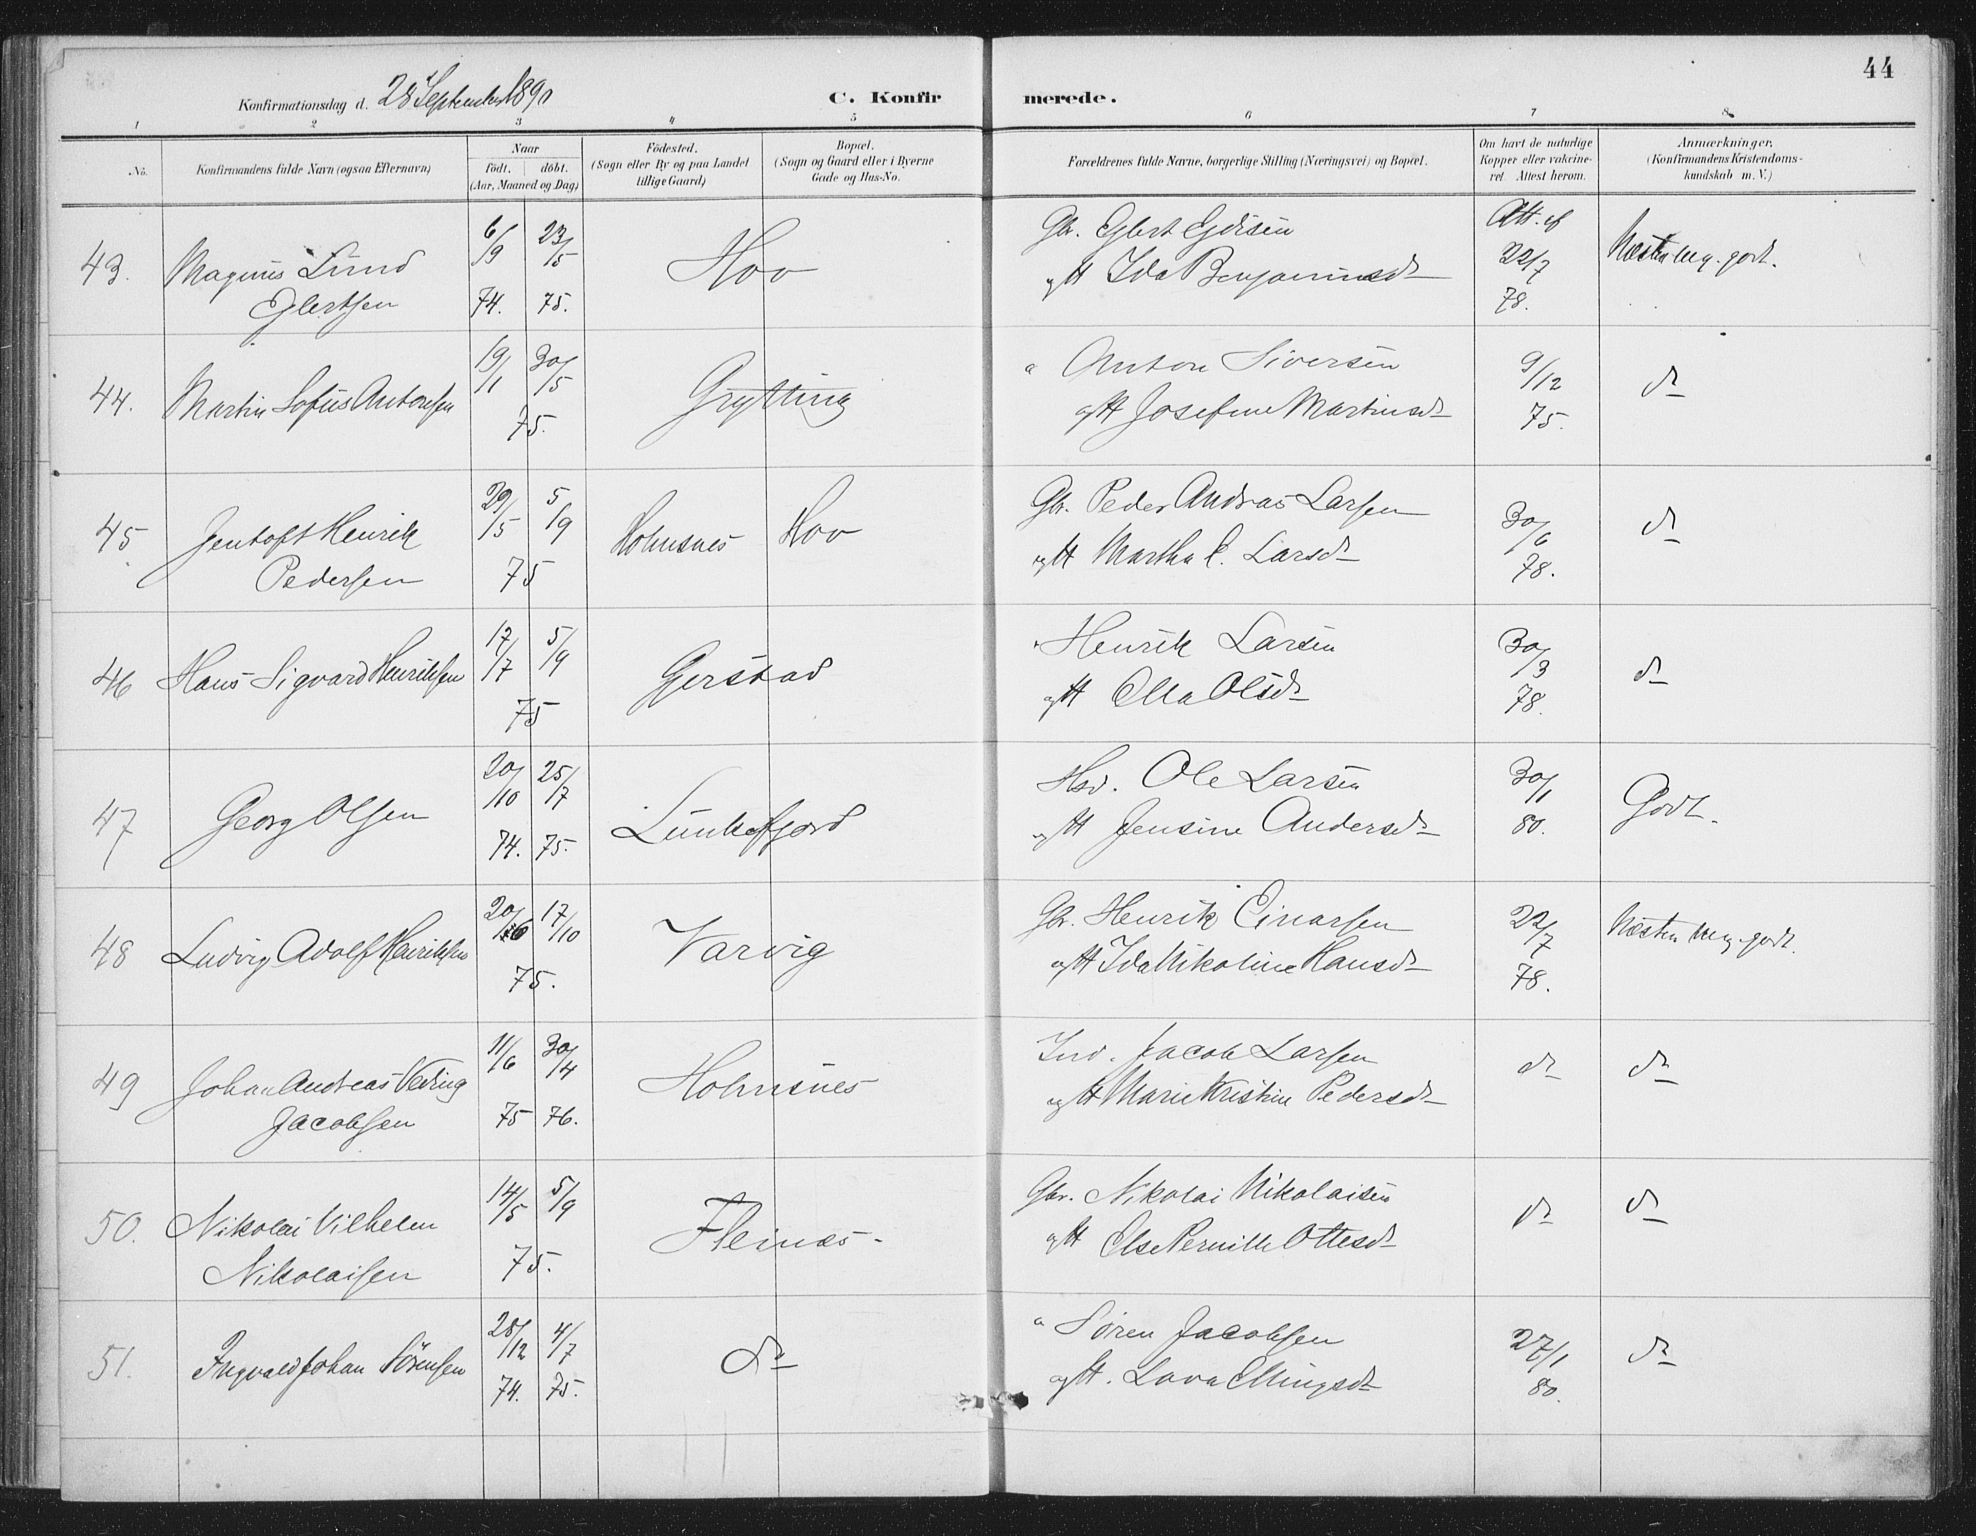 44
Konfirmationsdag d. 28 September 1890
C. Konfirmerede.
1 2 3 4 5 6 7 8
No. Konfirmandens fulde Navn (ogsaa Efternavn) Naar født. døbt. (Aar, Maaned og Dag) Fødested. (Sogn eller By og paa Landet tillige Gaard) Bopæl. (Sogn og Gaard eller i Byerne Gade og Hus-No. Forældrenes fulde Navne, borgerlige Stilling (Næringsvei) og Bopæl. Om havt de naturlige Kopper eller vakcineret. Attest herom. Anmærkninger. (Konfirmandens Kristendomskundskab m. V.)
43. Magnus Lund Eglertsen 6/9 74. 23/5 75. Hov Gbr. Eglert Edisen Att. af 22/7 78. Næsten meg. godt.
og H Ida Benjaminsd
44. Martin Sofus Antonsen 19/1 30/5 75. Grytting " Anton Siversen 9/12 75. do
og H Josefine Martinsd
45 Jentoft Henrik Pedersen 29/5 5/9 75 Holmsnes Hov Gbr. Peder Andreas Larsen 30/6 78. do
og H Martha E. Larsd
46 Hans Sigvard Henriksen 17/7 5/9 75 Gerstad " Henrik Larsen 30/3 78. do
og H Ella Olsd
47 Georg Olsen 20/10 74. 25/7 75. Lunkefjord Hsd. Ole Larsen 30/1 80. Godt.
og H Jensine Andersd
48 Ludvig Adolf Henriksen 20/6 17/10 75. Varvig Gbr. Henrik Einarsen 22/7 78. Næsten meg. godt.
og H Ida Nikoline Hansd
49 Johan Andreas Vedring Jacobsen 11/6 75 30/4 76. Holmsnes Ind. Jacob Larsen do do
og H Marie Kristine Pedersd
50. Nikolai Vilhelm Nikolaisen 14/5 5/9 75. Fleines. Gbr. Nikolai Nikolaisen do do
og H Else Pernille Ottesd
51. Ingvald Johan Sørensen 28/12 74. 4/7 75. do " Søren Jacobsen 27/1 80. do
og H. Lova Ellingsd